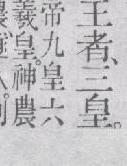 王者、三皇。
帝九皇六
羲皇。神農